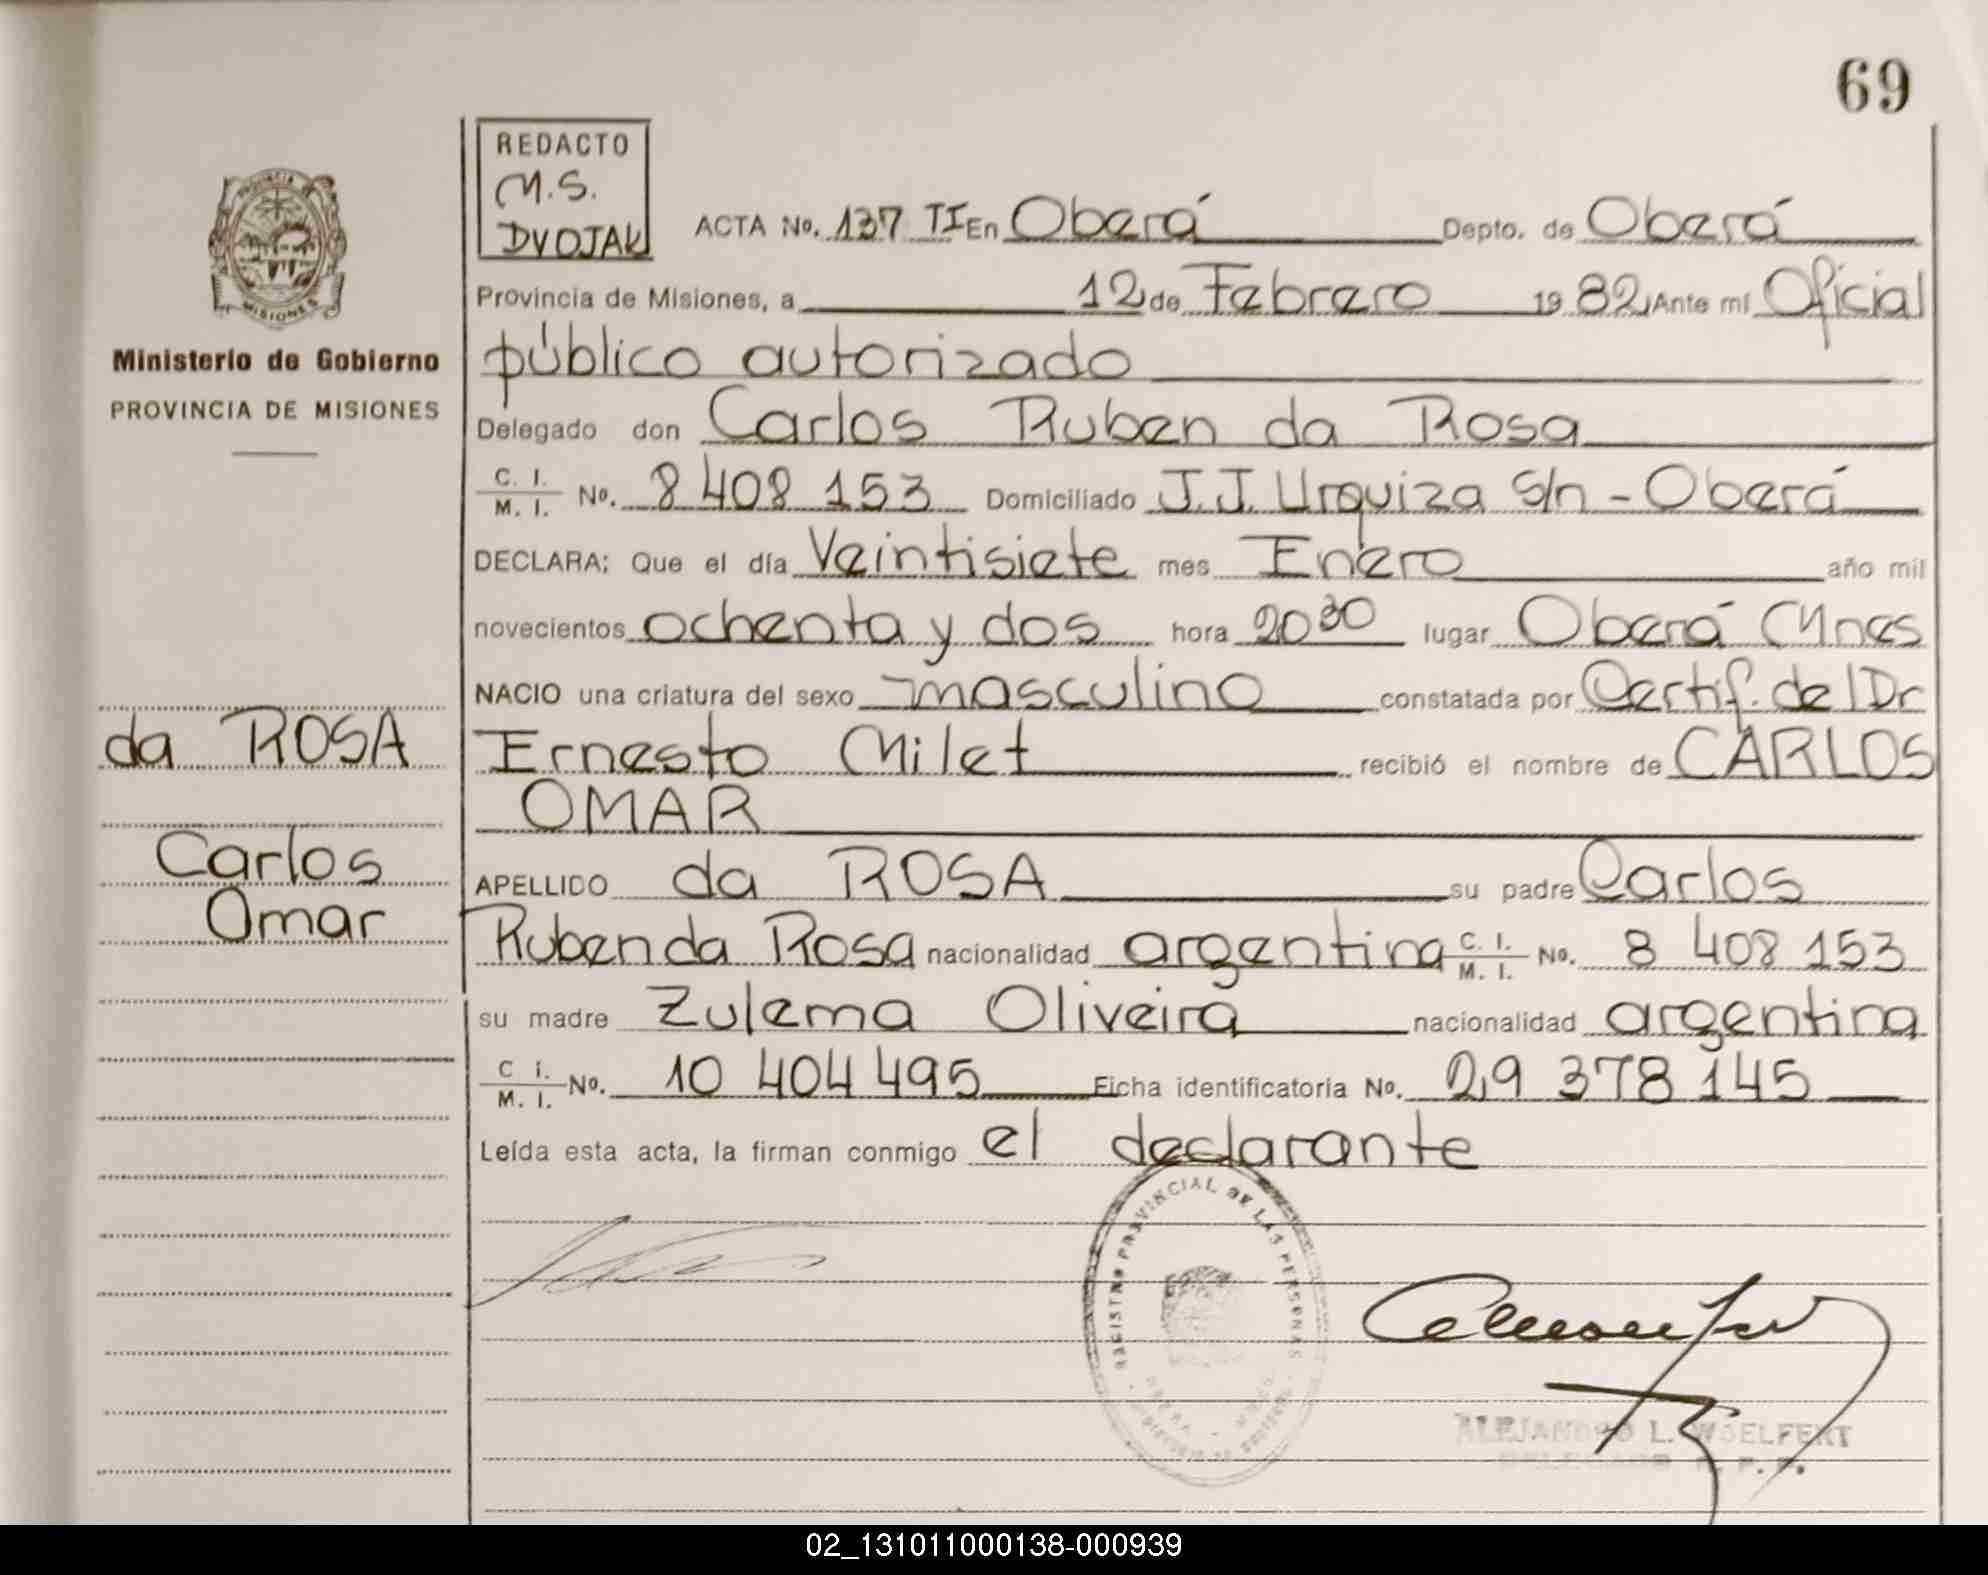 69
REDACTO
M.S.
DVOJAK
ACTA No. 137 TI En Oberá Depto. de Oberá
Provincia de Misiones, a 12 de Febrero 19 82 Ante mí Oficial
público autorizado
Delegado don Carlos Ruben da Rosa
C. I. / M. I. No. 8 408 153 Domiciliado J.J. Urquiza S/n - Oberá
DECLARA: Que el día Veintisiete mes Enero año mil
novecientos ochenta y dos hora 20 30 lugar Oberá Mnes
NACIO una criatura del sexo masculino constatada por Certif. del Dr
Ernesto Milet recibió el nombre de CARLOS
OMAR
APELLIDO da ROSA su padre Carlos
Ruben da Rosa nacionalidad argentina C. I. / M. I. No. 8 408 153
su madre Zulema Oliveira nacionalidad argentina
C I. / M. I. No. 10 404 495 Ficha identificatoria No. 29 378 145
Leída esta acta, la firman conmigo el declarante
PROVINCIA DE
MISIONES
Ministerio de Gobierno
PROVINCIA DE MISIONES
da ROSA
Carlos
Omar
REGISTRO PROVINCIAL DE LAS PERSONAS
ALEJANDRO L. WOELFERT
DELEGADO R. P. P.
02_131011000138-000939